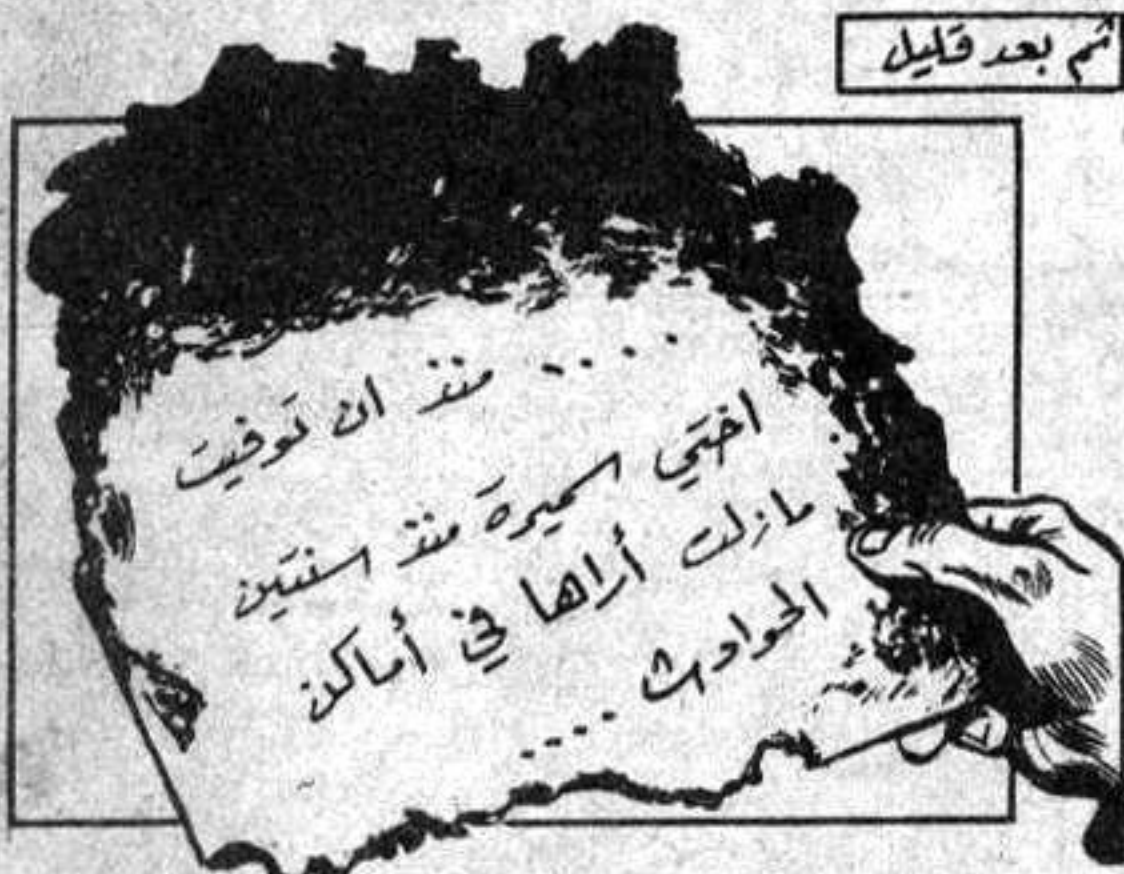 ثم بعد قليل
.... منذ ان توفيت
اختي سميرة منذ سنتين
مازلت أراها في أماكن
الحوادث ....